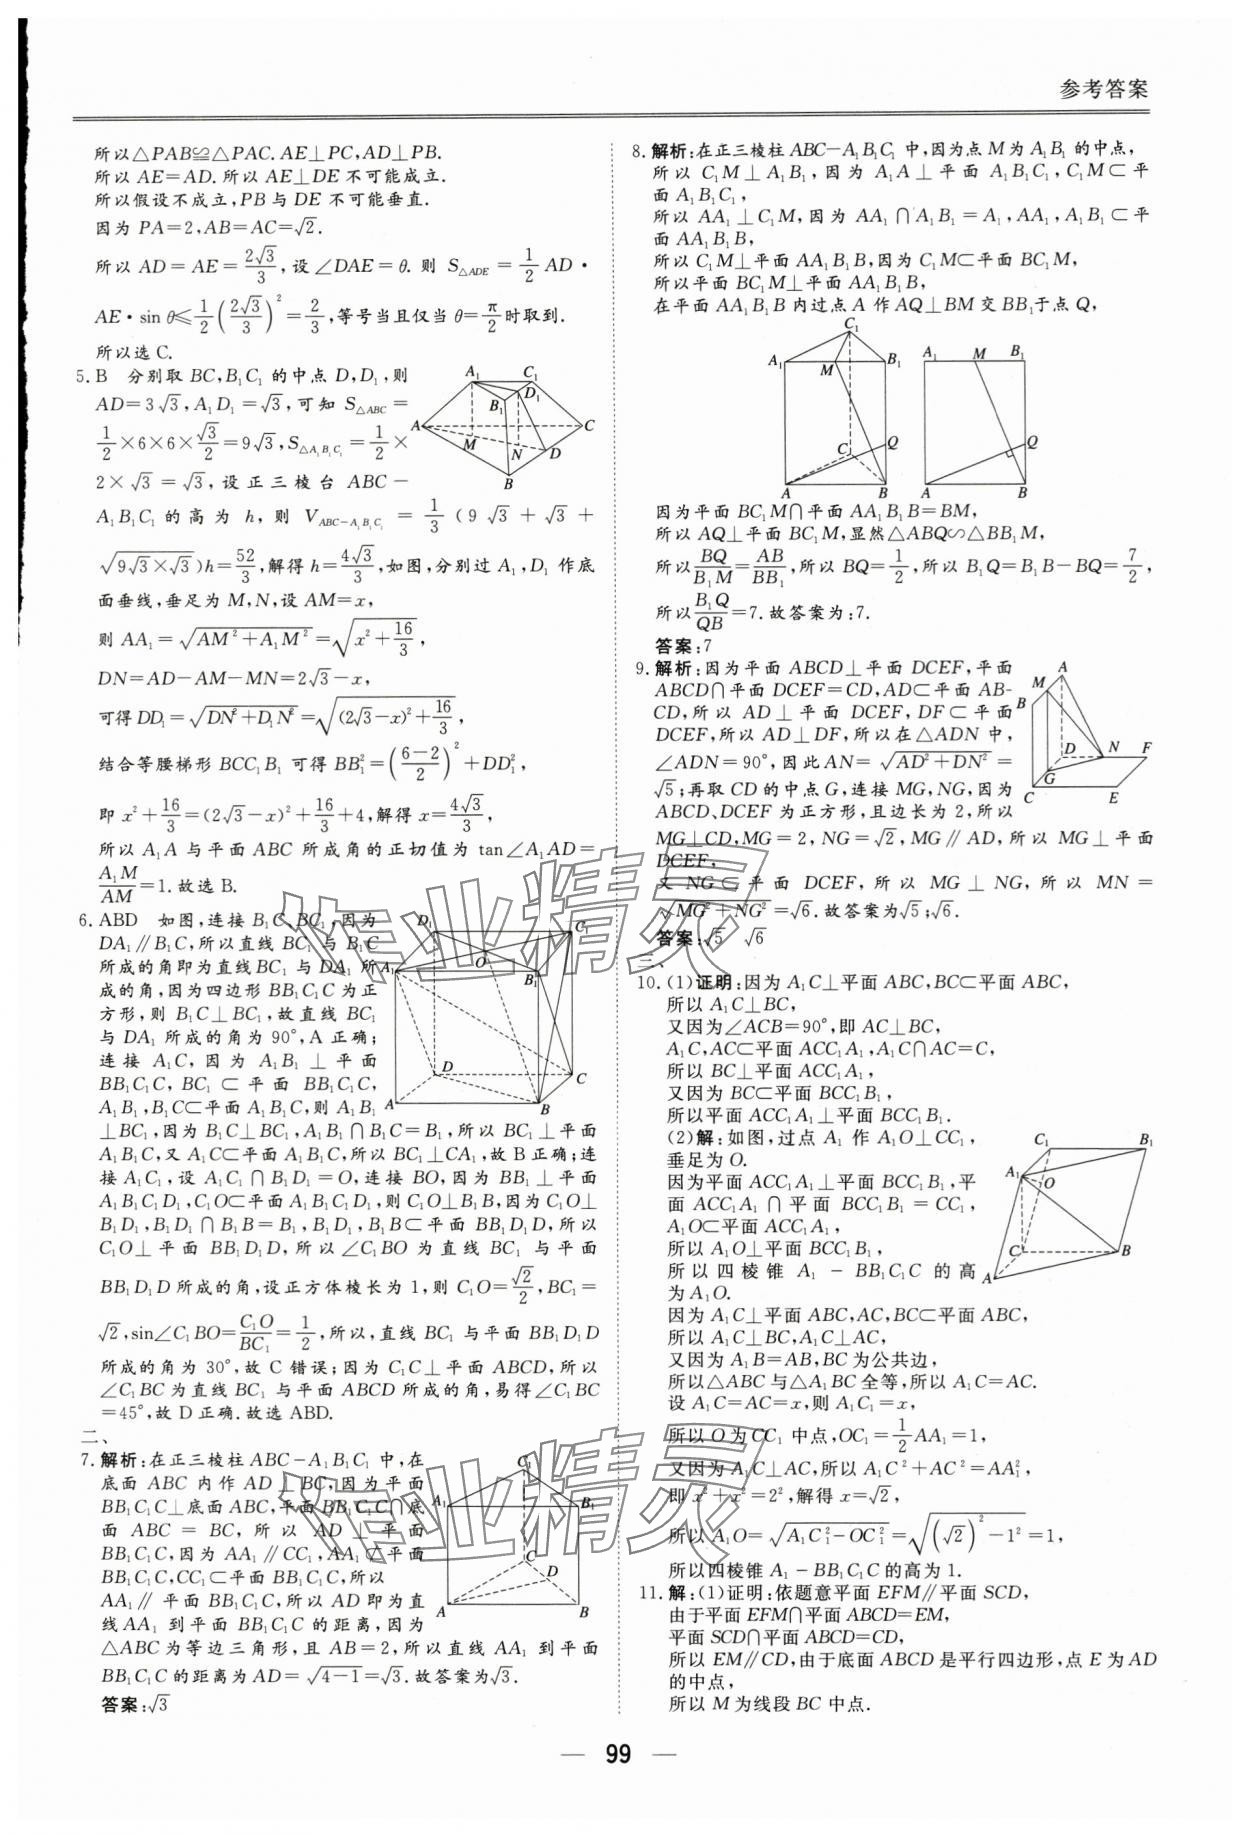 参考答案
所以△PAB≌△PAC.AE⊥PC,AD⊥PB.
所以 AE=AD.所以 AE⊥DE 不可能成立.
所以假设不成立,PB 与 DE 不可能垂直.
因为 PA=2,AB=AC=√2.
所以 AD=AE=2√3/3,设∠DAE=θ.则 S△ADE=1/2 AD·
AE·sin θ≤1/2(2√3/3)²=2/3,等号当且仅当 θ=π/2 时取到.
所以选 C.
5. B 分别取 BC,B₁C₁ 的中点 D,D₁,则
AD=3√3,A₁D₁=√3,可知 S△ABC=
1/2×6×6×√3/2=9√3,S△A₁B₁C₁=1/2×
2×√3=√3,设正三棱台 ABC-
A₁B₁C₁ 的高为 h,则 V_ABC-A₁B₁C₁=1/3(9√3+√3+
√(9√3×√3))h=52/3,解得 h=4√3/3,如图,分别过 A₁,D₁ 作底
面垂线,垂足为 M,N,设 AM=x,
则 AA₁=√(AM²+A₁M²)=√(x²+16/3),
DN=AD-AM-MN=2√3-x,
可得 DD₁=√(DN²+D₁N²)=√((2√3-x)²+16/3),
结合等腰梯形 BCC₁B₁ 可得 BB₁²=((6-2)/2)²+DD₁²,
即 x²+16/3=(2√3-x)²+16/3+4,解得 x=4√3/3,
所以 A₁A 与平面 ABC 所成角的正切值为 tan∠A₁AD=
A₁M/AM=1.故选 B.
6. ABD 如图,连接 B₁C、BC₁,因为
DA₁∥B₁C,所以直线 BC₁ 与 B₁C
所成的角即为直线 BC₁ 与 DA₁ 所
成的角,因为四边形 BB₁C₁C 为正
方形,则 B₁C⊥BC₁,故直线 BC₁
与 DA₁ 所成的角为 90°,A 正确;
连接 A₁C,因为 A₁B₁⊥平面
BB₁C₁C,BC₁⊂平面 BB₁C₁C,
A₁B₁,B₁C⊂平面 A₁B₁C,则 A₁B₁
⊥BC₁,因为 B₁C⊥BC₁,A₁B₁∩B₁C=B₁,所以 BC₁⊥平面
A₁B₁C,又 A₁C⊂平面 A₁B₁C,所以 BC₁⊥CA₁,故 B 正确;连
接 A₁C₁,设 A₁C₁∩B₁D₁=O,连接 BO,因为 BB₁⊥平面
A₁B₁C₁D₁,C₁O⊂平面 A₁B₁C₁D₁,则 C₁O⊥B₁B,因为 C₁O⊥
B₁D₁,B₁D₁∩B₁B=B₁,B₁D₁,B₁B⊂平面 BB₁D₁D,所以
C₁O⊥平面 BB₁D₁D,所以∠C₁BO 为直线 BC₁ 与平面
BB₁D₁D 所成的角,设正方体棱长为 1,则 C₁O=√2/2,BC₁=
√2,sin∠C₁BO=C₁O/BC₁=1/2,所以,直线 BC₁ 与平面 BB₁D₁D
所成的角为 30°,故 C 错误;因为 C₁C⊥平面 ABCD,所以
∠C₁BC 为直线 BC₁ 与平面 ABCD 所成的角,易得∠C₁BC
=45°,故 D 正确.故选 ABD.
二、
7. 解析:在正三棱柱 ABC-A₁B₁C₁ 中,在
底面 ABC 内作 AD⊥BC,因为平面
BB₁C₁C⊥底面 ABC,平面 BB₁C₁C∩底
面 ABC=BC,所以 AD⊥平面
BB₁C₁C,因为 AA₁∥CC₁,AA₁⊄平面
BB₁C₁C,CC₁⊂平面 BB₁C₁C,所以
AA₁∥平面 BB₁C₁C,所以 AD 即为直
线 AA₁ 到平面 BB₁C₁C 的距离,因为
△ABC 为等边三角形,且 AB=2,所以直线 AA₁ 到平面
BB₁C₁C 的距离为 AD=√(4-1)=√3.故答案为√3.
答案:√3
8. 解析:在正三棱柱 ABC-A₁B₁C₁ 中,因为点 M 为 A₁B₁ 的中点,
所以 C₁M⊥A₁B₁,因为 A₁A⊥平面 A₁B₁C₁,C₁M⊂平
面 A₁B₁C₁,
所以 AA₁⊥C₁M,因为 AA₁∩A₁B₁=A₁,AA₁,A₁B₁⊂平
面 AA₁B₁B,
所以 C₁M⊥平面 AA₁B₁B,因为 C₁M⊂平面 BC₁M,
所以平面 BC₁M⊥平面 AA₁B₁B,
在平面 AA₁B₁B 内过点 A 作 AQ⊥BM 交 BB₁于点 Q,
因为平面 BC₁M∩平面 AA₁B₁B=BM,
所以 AQ⊥平面 BC₁M,显然△ABQ∽△BB₁M,
所以BQ/B₁M=AB/BB₁,所以 BQ=1/2,所以 B₁Q=B₁B-BQ=7/2,
所以B₁Q/QB=7.故答案为:7.
答案:7
9. 解析:因为平面 ABCD⊥平面 DCEF,平面
ABCD∩平面 DCEF=CD,AD⊂平面 AB-
CD,所以 AD⊥平面 DCEF,DF⊂平面
DCEF,所以 AD⊥DF,所以在△ADN 中,
∠ADN=90°,因此 AN=√(AD²+DN²)=
√5;再取 CD 的中点 G,连接 MG,NG,因为
ABCD、DCEF 为正方形,且边长为 2,所以
MG⊥CD,MG=2,NG=√2,MG∥AD,所以 MG⊥平面
DCEF,
又 NG⊂平面 DCEF,所以 MG⊥NG,所以 MN=
√(MG²+NG²)=√6.故答案为√5;√6.
答案:√5 √6
三、
10. (1)证明:因为 A₁C⊥平面 ABC,BC⊂平面 ABC,
所以 A₁C⊥BC,
又因为∠ACB=90°,即 AC⊥BC,
A₁C,AC⊂平面 ACC₁A₁,A₁C∩AC=C,
所以 BC⊥平面 ACC₁A₁,
又因为 BC⊂平面 BCC₁B₁,
所以平面 ACC₁A₁⊥平面 BCC₁B₁.
(2)解:如图,过点 A₁ 作 A₁O⊥CC₁,
垂足为 O.
因为平面 ACC₁A₁⊥平面 BCC₁B₁,平
面 ACC₁A₁∩平面 BCC₁B₁=CC₁,
A₁O⊂平面 ACC₁A₁,
所以 A₁O⊥平面 BCC₁B₁,
所以四棱锥 A₁-BB₁C₁C 的高
为 A₁O.
因为 A₁C⊥平面 ABC,AC,BC⊂平面 ABC,
所以 A₁C⊥BC,A₁C⊥AC,
又因为 A₁B=AB,BC 为公共边,
所以△ABC 与△A₁BC 全等,所以 A₁C=AC.
设 A₁C=AC=x,则 A₁C₁=x,
所以 O 为 CC₁ 中点,OC₁=1/2 AA₁=1,
又因为 A₁C⊥AC,所以 A₁C²+AC²=AA₁²,
即 x²+x²=2²,解得 x=√2,
所以 A₁O=√(A₁C₁²-OC₁²)=√((√2)²-1²)=1,
所以四棱锥 A₁-BB₁C₁C 的高为 1.
11. 解:(1)证明:依题意平面 EFM∥平面 SCD,
由于平面 EFM∩平面 ABCD=EM,
平面 SCD∩平面 ABCD=CD,
所以 EM∥CD,由于底面 ABCD 是平行四边形,点 E 为 AD
的中点,
所以 M 为线段 BC 中点.
— 99 —
作业精灵
作业精灵